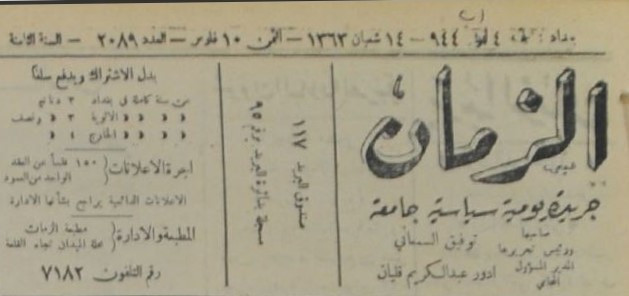 بغداد: جمعة ٤ آب ٩٤٤ – ١٤ شعبان ١٣٦٣ – الثمن ١٠ فلوس – العدد ٢٠٨٩ – السنة الثامنة
الزمان
جريدة يومية سياسية جامعة
صاحبها
ورئيس تحريرها
توفيق السمعاني
المدير المسؤول
المحامي
ادور عبدالكريم قليان
صندوق البريد ١١٧
مسجلة بدائرة البريد برقم ٩٥
بدل الاشتراك ويدفع سلفاً
عن سنة كاملة في بغداد ٣ دنانير
» » » » الالوية ٣ » ونصف
» » » » الخارج ٤ »
اجرة الاعلانات ( ١٥٠ فلساً عن العقد
الواحد من العمود
الاعلانات الدائمية يراجع بشأنها الادارة
المطبعة والادارة ( مطبعة الزمان
محلة الميدان تجاه القلعة
رقم التلفون ٧١٨٢